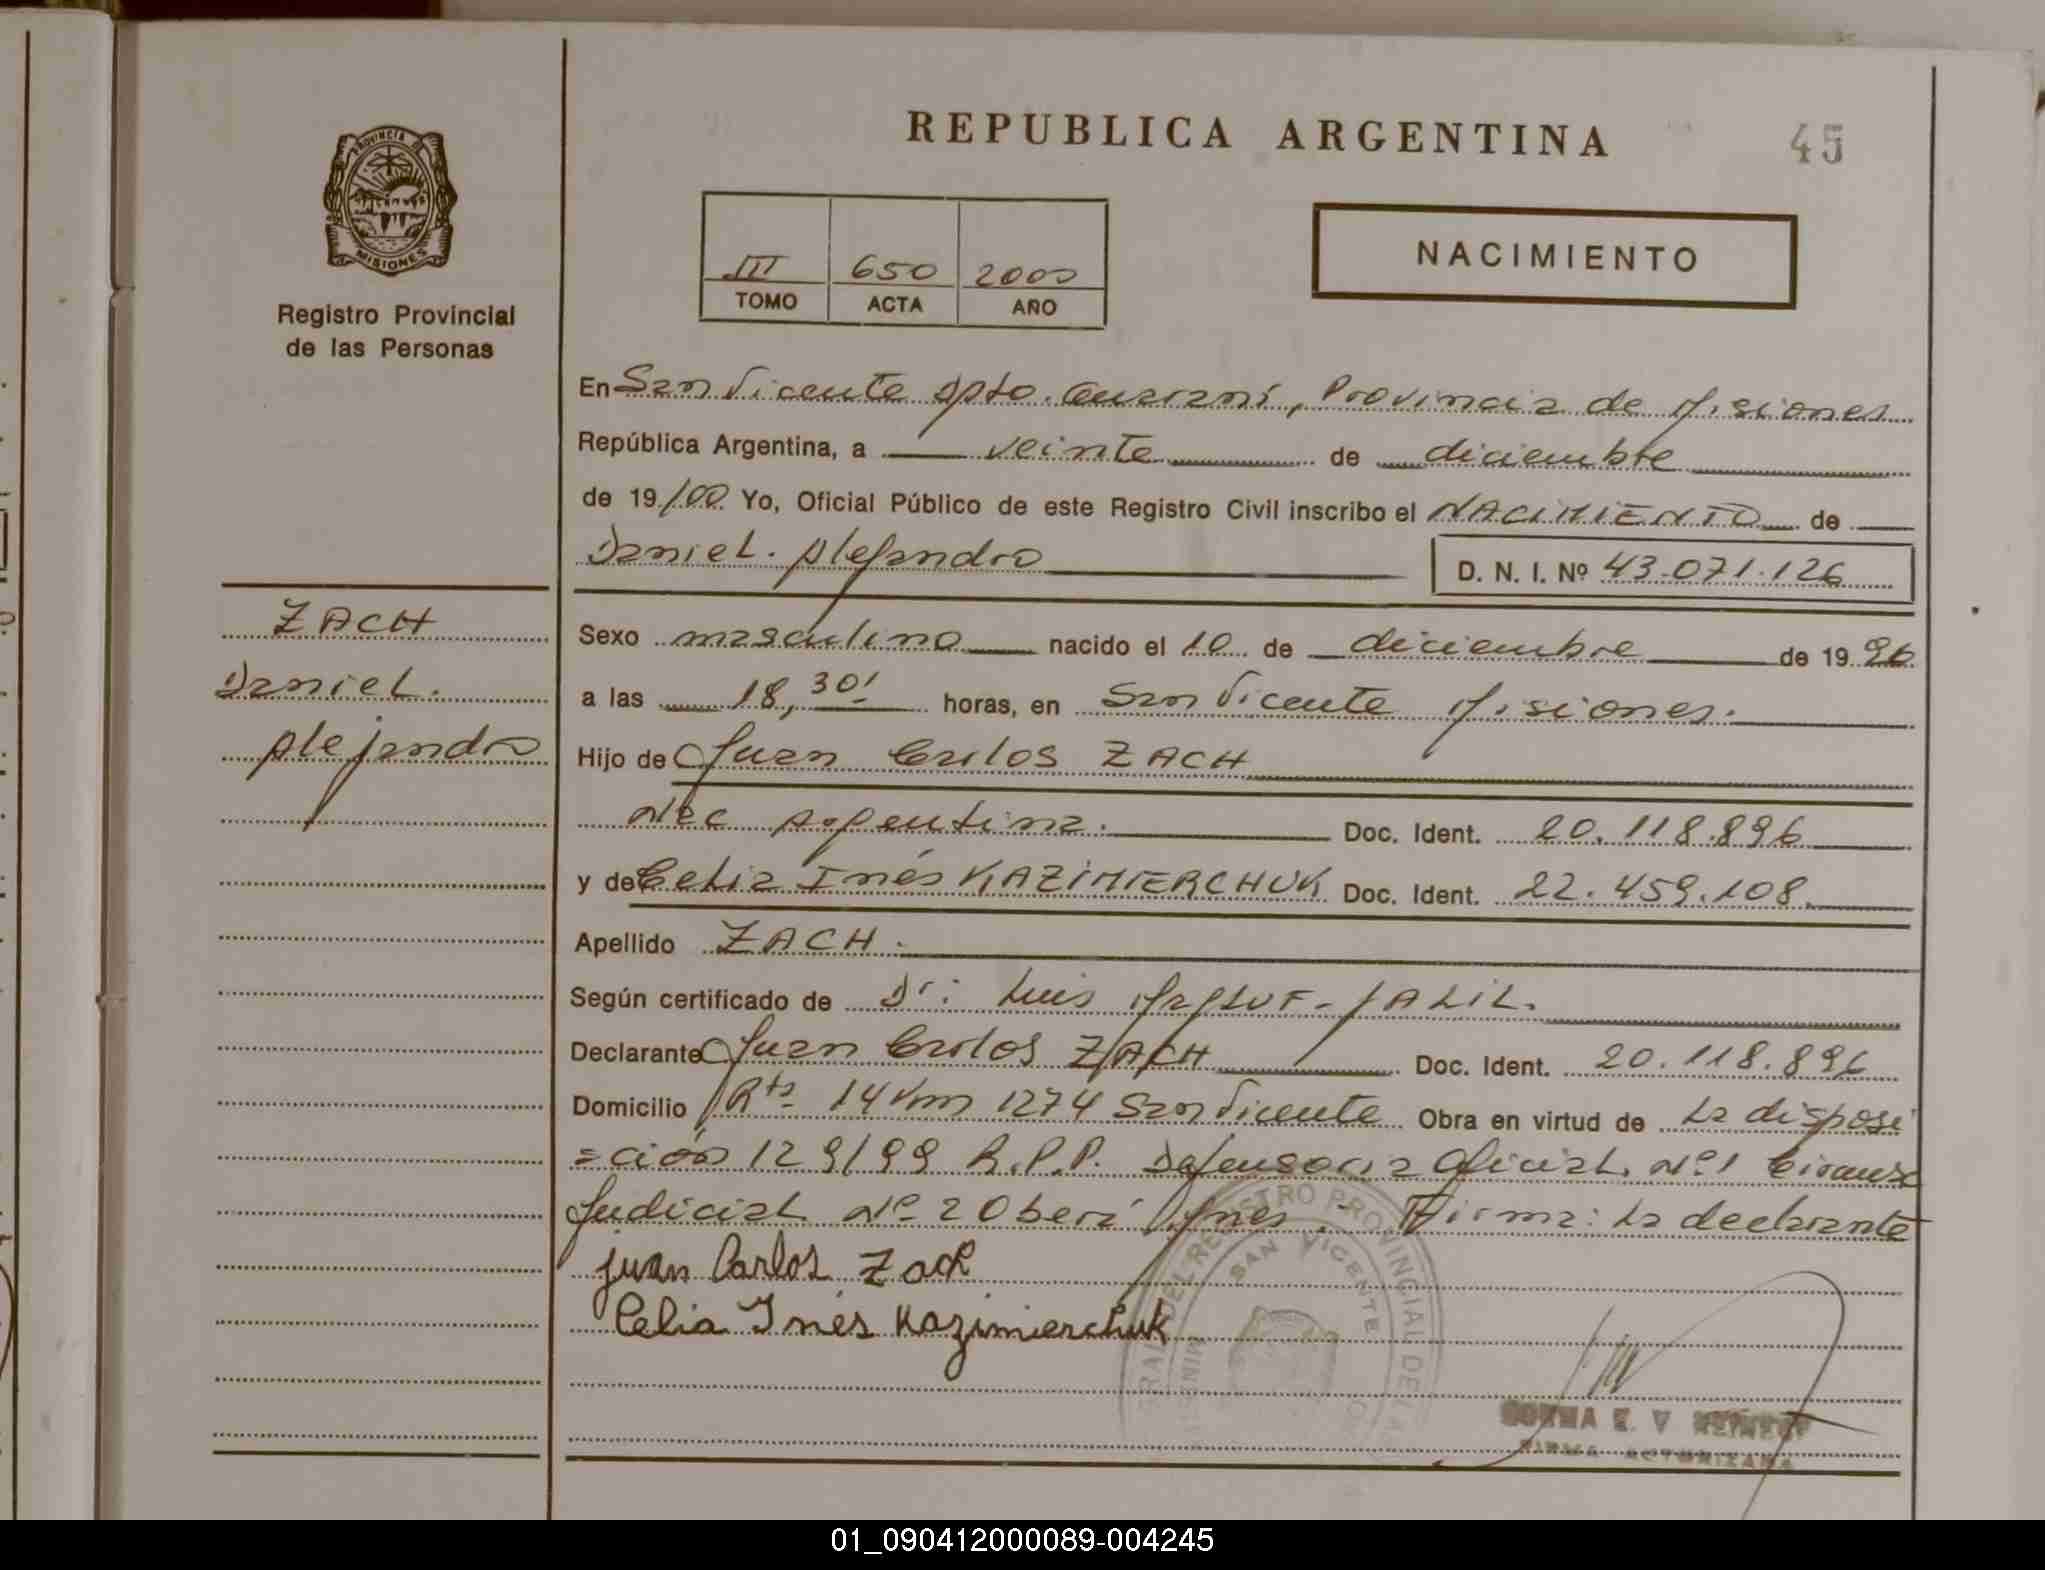 REPUBLICA ARGENTINA
45
PROVINCIA DE
MISIONES
Registro Provincial
de las Personas
III 650 2000
TOMO ACTA AÑO
NACIMIENTO
En San Vicente Dpto. Guaraní, Provincia de Misiones
República Argentina, a veinte de diciembre
de 19/00 Yo, Oficial Público de este Registro Civil inscribo el NACIMIENTO de
Daniel Alejandro
D. N. I. Nº 43.071.126
ZACH
Daniel
Alejandro
Sexo masculino nacido el 10 de diciembre de 1996
a las 18,30' horas, en San Vicente Misiones.
Hijo de Juan Carlos ZACH
Nac Argentina. Doc. Ident. 20.118.896
y de Celia Inés KAZIMIERCHUK Doc. Ident. 22.459.108.
Apellido ZACH.
Según certificado de Dr: Luis JALIL.
Declarante Juan Carlos ZACH Doc. Ident. 20.118.896
Domicilio Rta 14 Km 1274 San Vicente Obra en virtud de La disposi
=ción 129/99 R.P.P. Defensoria Oficial Nº1 Circunsc
Judicial Nº 2 Oberá Mnes. Firma: La declarante
juan Carlos Zach
Celia Inés Kazimierchuk
DEL REGISTRO PROVINCIAL DE LA
SAN VICENTE
NORMA E. V
FIRMA AUTORIZADA
01_090412000089-004245